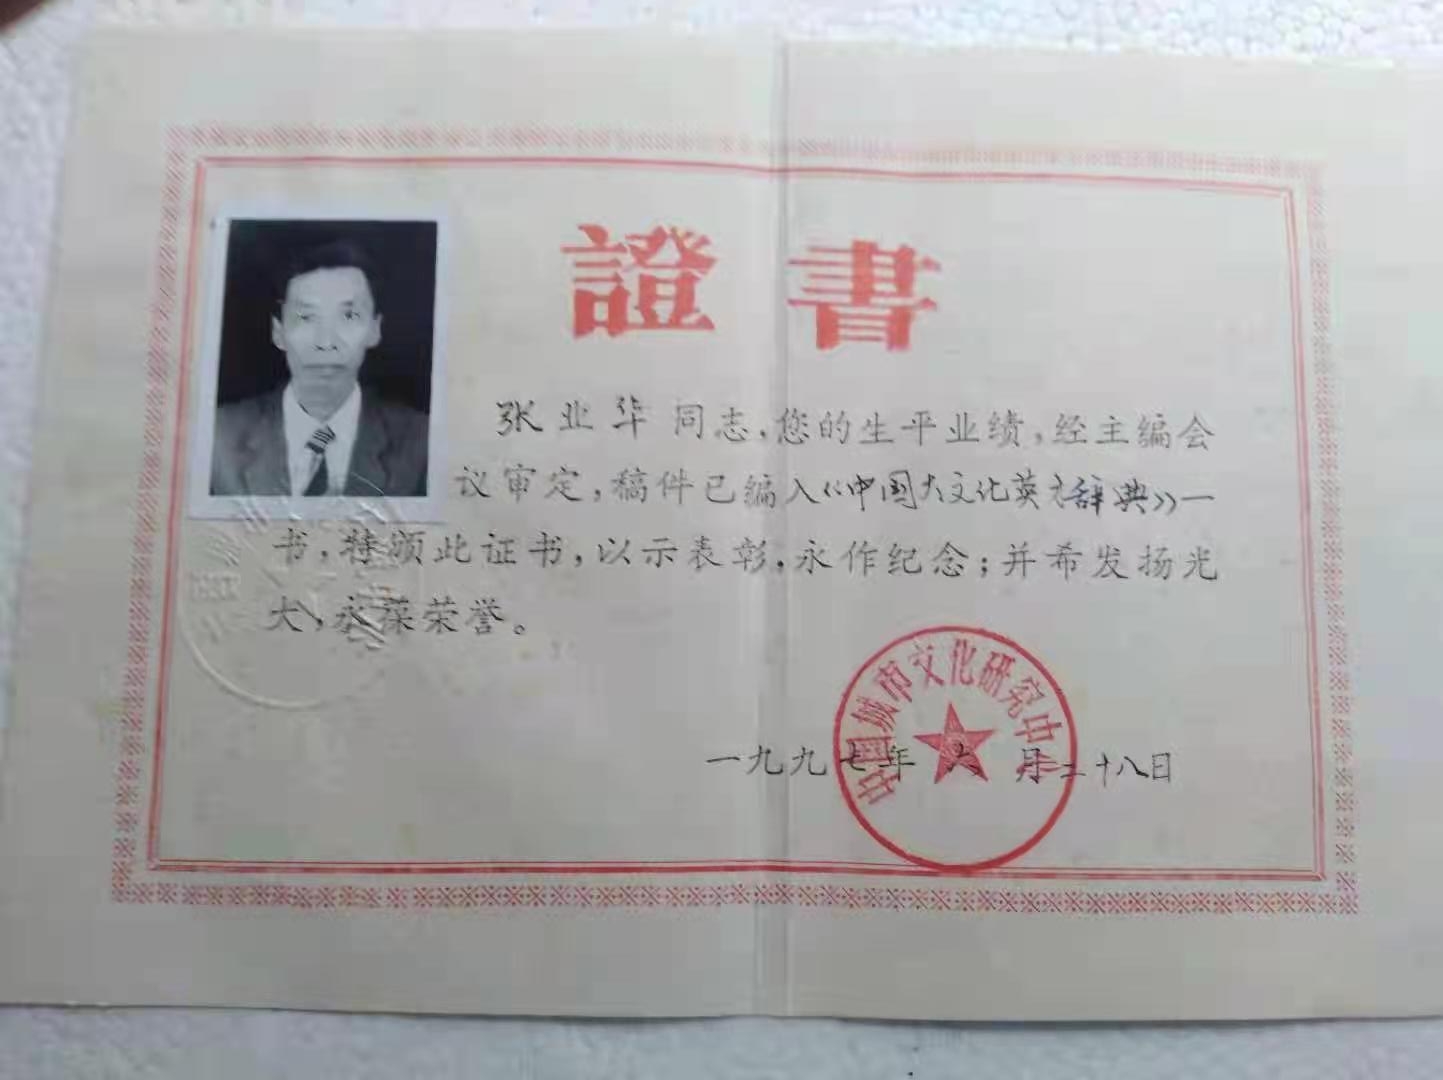 證書
张业华同志，您的生平业绩，经主编会
议审定，稿件已编入《中国大文化英才辞典》一
书，特颁此证书，以示表彰，永作纪念；并希发扬光
大，永葆荣誉。
中国城市文化研究中心
一九九七年六月二十八日